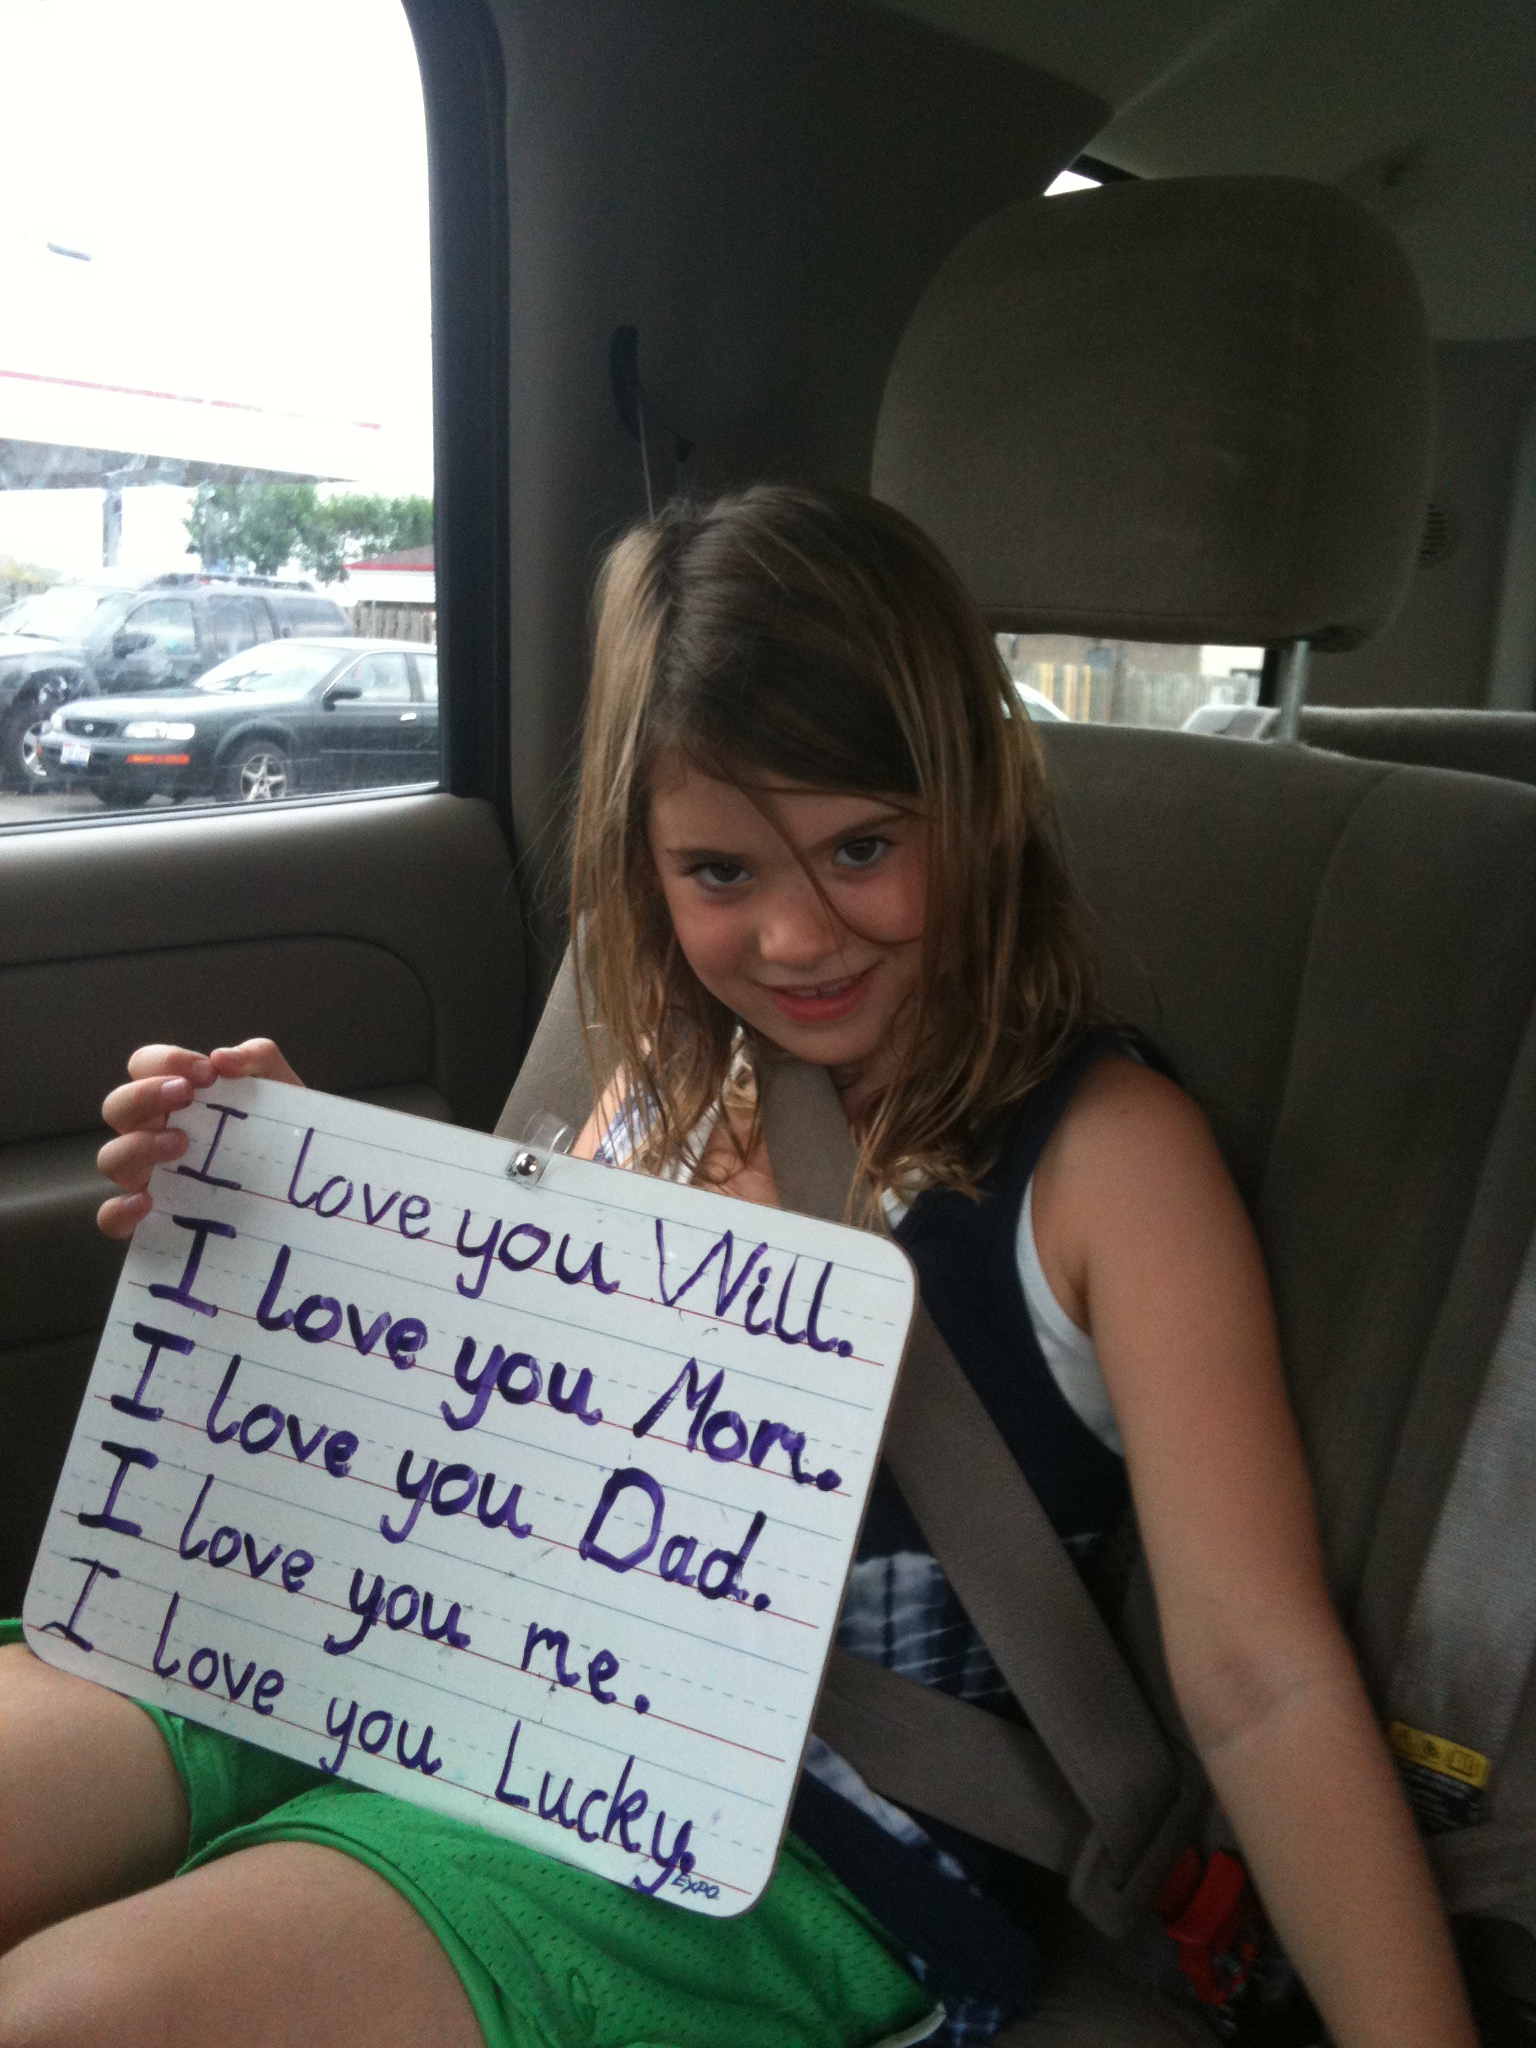 I love you Will.
I love you Mom.
I love you Dad.
I love you me.
I love you Lucky.
EXPO